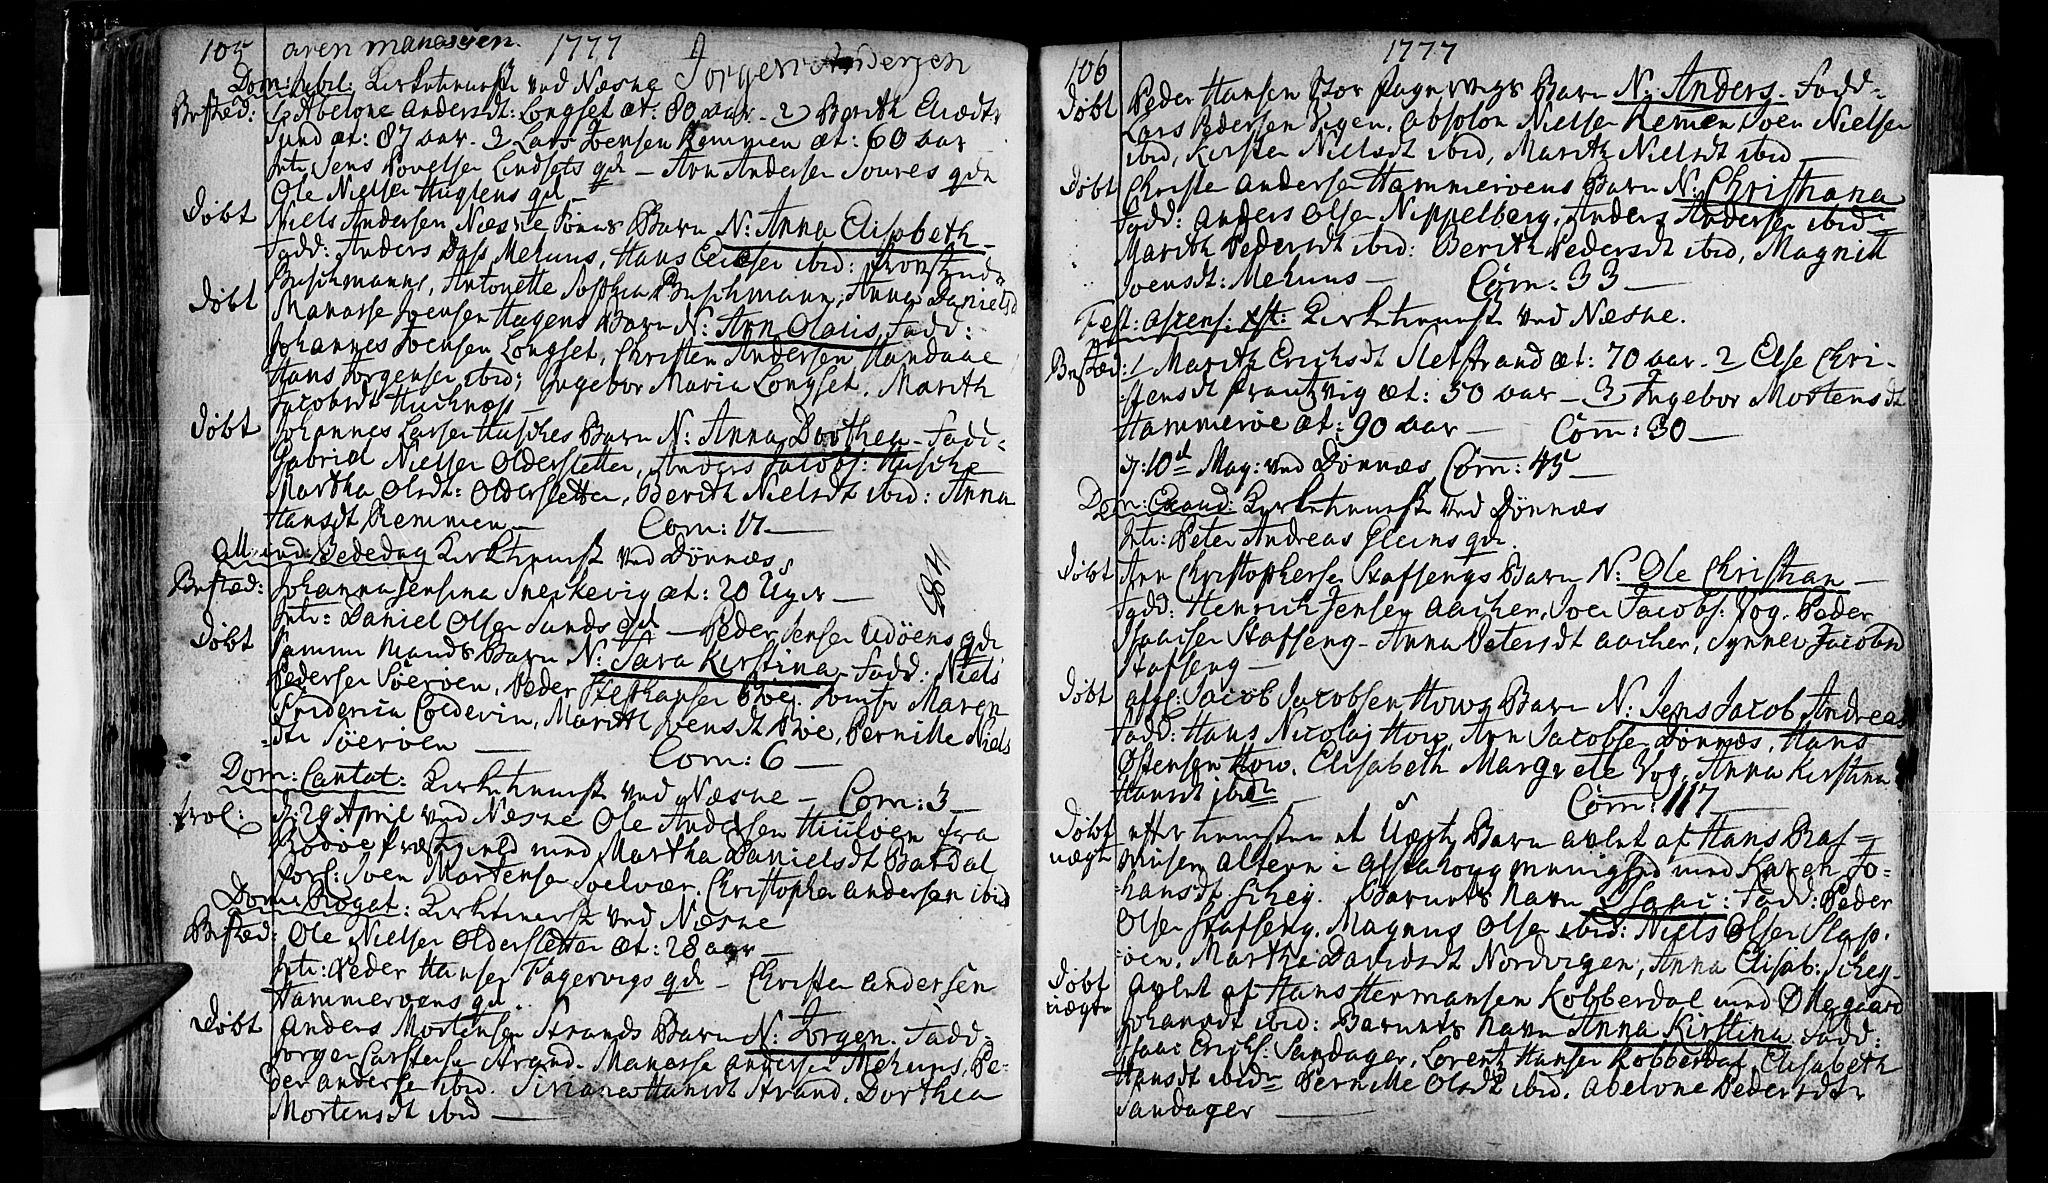 105 aren manassen. 1777 Jørgen Andersen
Dom: Jubil: Kirketieniste ved Næsne
Bnsted: 1 Abelone Andersdt: Longset æt: 80 aar - 2 Berith Ericdtr
Sund æt: 87 aar - 3 Lars Joensen Remmen æt: 60 aar
Intr: Jens Povelsen Lindsets qde - Arn Andersen Soures qde
Ole Nielsen Huglens qde
Døbt Niels Andersen Næsne Barn N: Anna Elisabeth
Fadd: Anders Dass Mehuus, Hans Ericsen ibid:
Buschmanns, Antonette Sophia Buschmann, Anna Danielsd
Døbt Manasse Joensen Hagens Barn N: Arn Olaus, Fadd:
Johannes Joensen Longset, Christen Andersen Handaae
Hans Jørgensen ibid; Ingebor Maria Longset. Marith
Jacobsdt
Døbt Johannes Larsen Husches Barn N: Anna Dorthea - Fadd:
Gabriel Nielsen Oldersletten, Anders Jacobs: Husche
Martha Olsdt: Oldersletten, Berith Nielsdt ibid: Anna
Hansdt Remmen - Com: 17 -
Alm: Bededag Kirketieniste ved Dønnæs
Bnsted: Johanna Jensina Sneckevig æt: 20 Uger -
Intr: Daniel Olsen Sunds qde - Peder Jensen Udøens qde
Døbt Samme Mands Barn N: Sara Kirstina - Fadd: Niels
Pedersen Søeroen, Peder Stephansen Boe. Jomfr Maren
Friderica Coldevin, Marith Joensdt Boe, Pernille Niels
dtr Søeroen - Com: 6 -
Dom: Cantat: Kirketieniste ved Næsne - Com: 3 -
trol: d: 29 April ved Næsne Ole Andersen fra
Bodøe Præstegield med Martha Danielsdt Bardal
Forl: Sven Mortensen Selvær. Christopher Andersen ibid
Domin: Rogat: Kirketieniste ved Næsne
Bnsted: Ole Nielsen Oldersletten æt: 28 aar -
Intr: Peder Hansen Fagervigs qde - Christen Andersen
Hammeroens qde
Døbt Anders Mortensen Strands Barn N: Jørgen. Fadd:
Jørgen Carstensen Strand. Manasse Andersen Mehuus, Pe-
der Andersen ibid. Siriana Hansdt Strand. Dorthea
Mortensdt ibid -
106 1777
Døbt Peder Hansen Stor Fagervigs Barn N: Anders. Fadd:
Lars Pedersen Vigen, Absolon Nielsen Remen, Sven Nielsen
ibid, Kirsten Nielsdt ibid, Marith Nielsdt ibid -
Døbt Christen Andersen Hammeroens Barn N: Christiana
Fadd: Anders Olsen Nippelberg, Anders Andersen ibid:
Marith Pedersdt ibid: Berith Pedersdt ibid, Magnill
Joensdt: Mehuus - Com: 33 -
Fest: Ascens: Xsti: Kirketieniste ved Næsne.
Bnsted: 1 Marith Erichsdt Sletstrand æt: 70 aar - 2 Else Chri-
stensdt Frantzvig æt: 50 aar - 3 Ingebor Mortensdt
Hammeroe æt: 90 aar - Com: 30 -
d: 10d May: ved Dønnæs Com: 45 -
Dom: Exaud: Kirketieniste ved Dønnæs
Intr: Peter Andreas Gleins qde.
Døbt Arn Christophersen Stafsengs Barn N: Ole Christian -
Fadd: Henrich Jensen Aacher, Joen Jacobs: Vog. Peder
Isaacsen Stafseng - Anna Petersdt Aacher, Synnev Jacobsd
Stafseng -
Døbt afgl: Jacob Jacobsen Hows Barn N: Jens Jacob Andreas
Fadd: Hans Nicolaj How, Arn Jacobsen Dønnæs, Hans
Østensen How. Elisabeth Margrete Vog, Anna Kirstina
Hansdt ibid: Com: 117
Døbt uægte efter tieniste et Uægte Barn avlet af Hans Ras-
musen Altern i Alstahoug menighed med Karen Jo-
hansdt Schey. Barnets Navn Isaac: Fadd: Peder
Olsen Stafseng. Magnus Olsen ibid: Niels Olsen Slap-
øen. Martha Davidsdt Nordvigen, Anna Elisab: Schey-
Døbt uægte Avlet af Hans Hermansen Kobberdal med Olleggaard
Johansdt ibid: Barnets Navn Anna Kirstina. Fadd:
Isaac Erichs: Sandager, Lorentz Hansen Kobberdal, Elisabeth
Hansdt ibid: Pernille Olsdt ibid. Abelone Pedersdtr
Sandager -